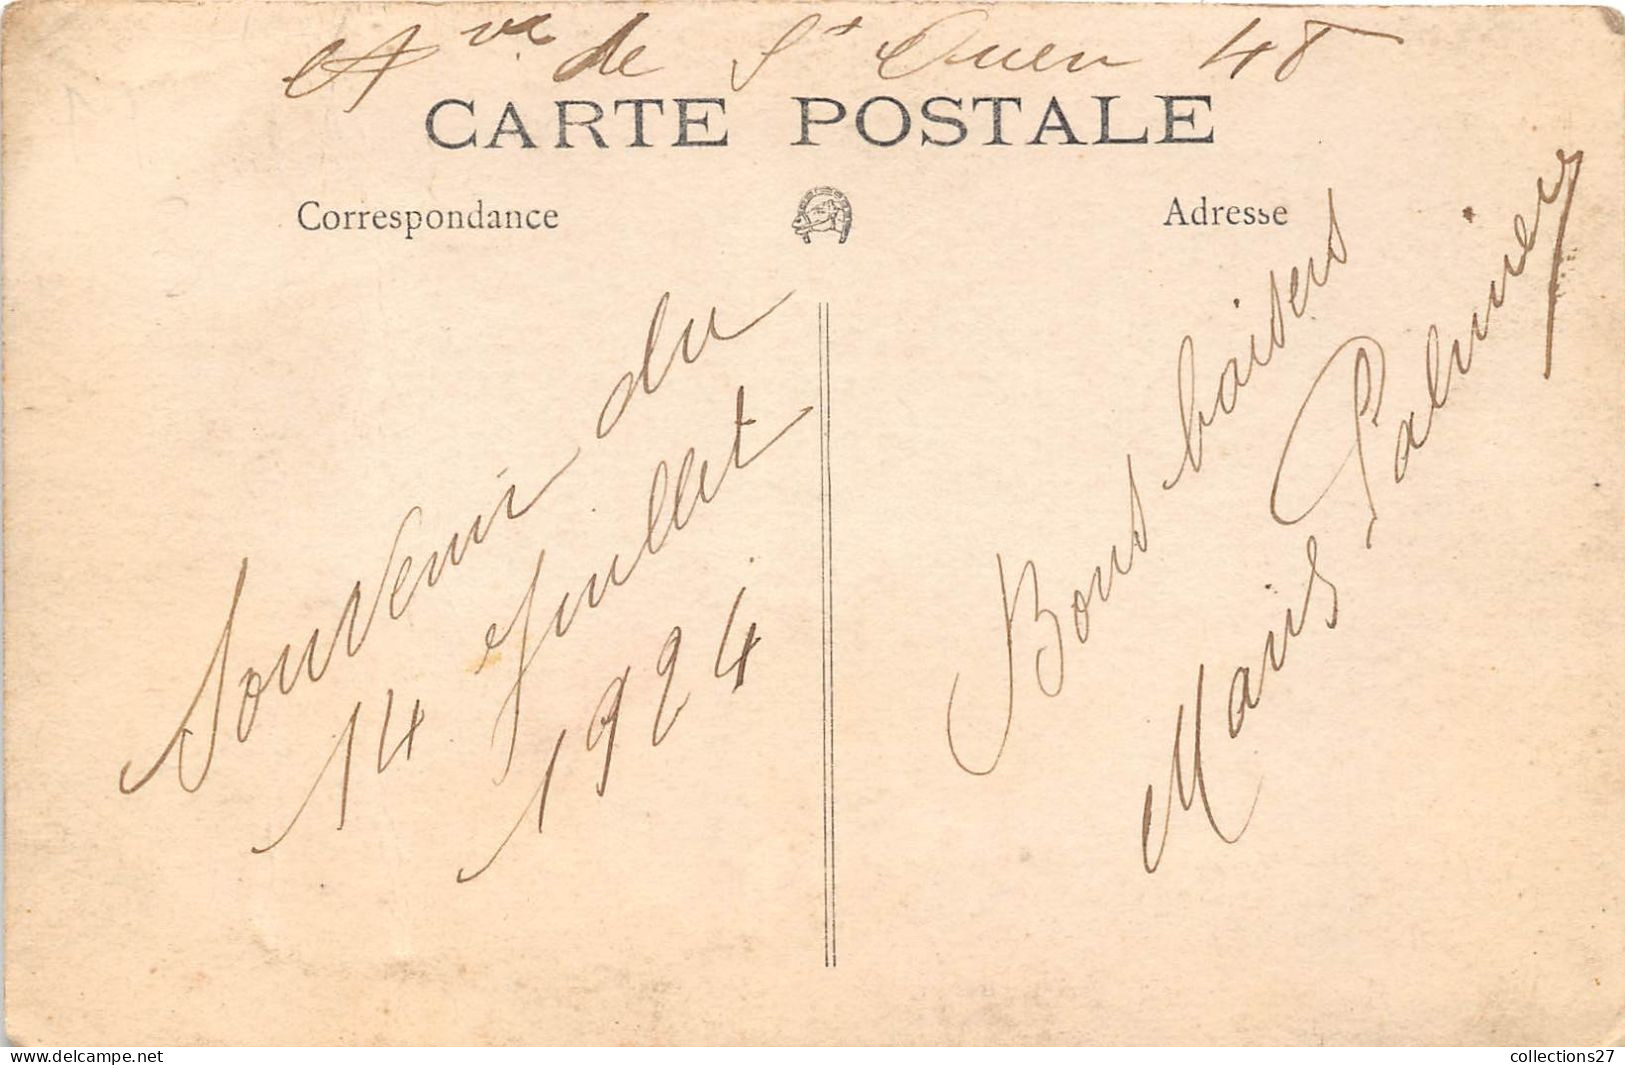 Ave de St Ouen 48
CARTE POSTALE
Correspondance
Adresse
Souvenir du
14 Juillet
1924
Bons baisers
Palmier
collections27